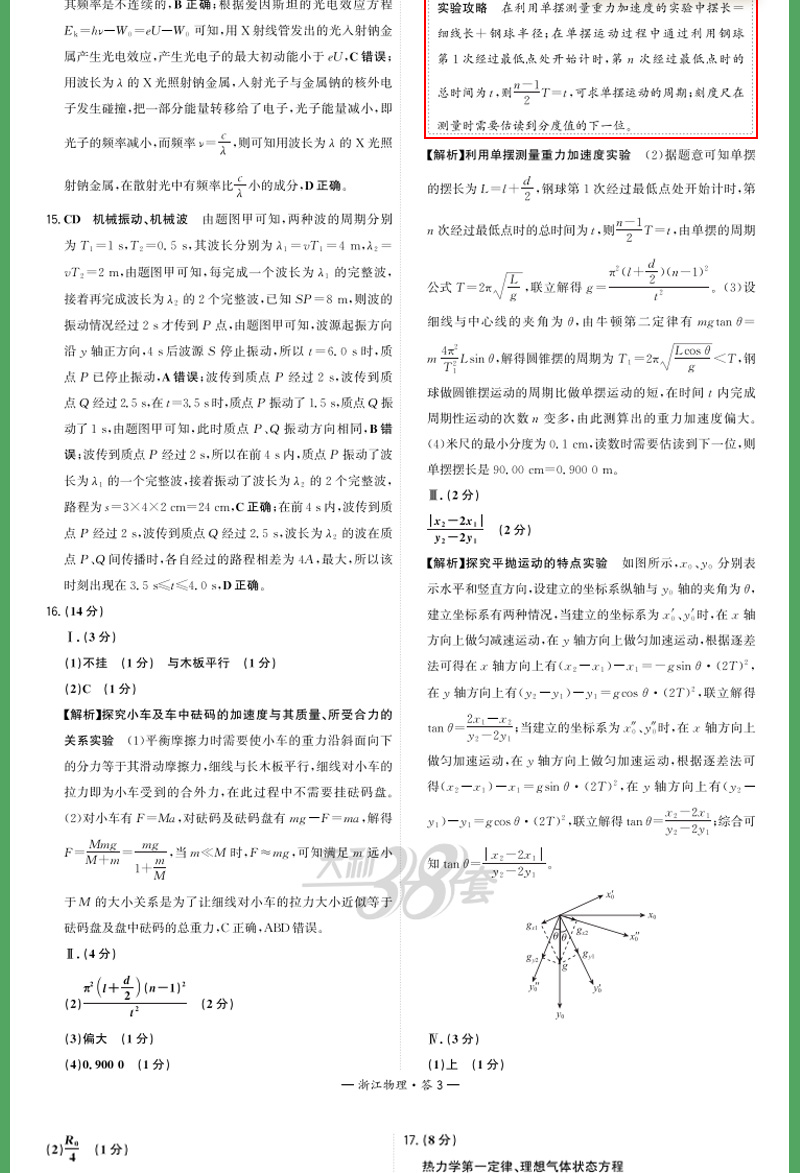 其频率是不连续的,B 正确;根据爱因斯坦的光电效应方程
Eₖ=hν−W₀=eU−W₀ 可知,用 X 射线管发出的光入射钠金
属产生光电效应,产生光电子的最大初动能小于 eU,C 错误;
用波长为 λ 的 X 光照射钠金属,入射光子与金属钠的核外电
子发生碰撞,把一部分能量转移给了电子,光子能量减小,即
光子的频率减小,而频率 ν=c/λ,则可知用波长为 λ 的 X 光照
射钠金属,在散射光中有频率比c/λ小的成分,D 正确。
15. CD 机械振动、机械波 由题图甲可知,两种波的周期分别
为 T₁=1 s,T₂=0.5 s,其波长分别为 λ₁=vT₁=4 m,λ₂=
vT₂=2 m,由题图甲可知,每完成一个波长为 λ₁ 的完整波,
接着再完成波长为 λ₂ 的 2 个完整波,已知 SP=8 m,则波的
振动情况经过 2 s 才传到 P 点,由题图甲可知,波源起振方向
沿 y 轴正方向,4 s 后波源 S 停止振动,所以 t=6.0 s 时,质
点 P 已停止振动,A 错误;波传到质点 P 经过 2 s,波传到质
点 Q 经过 2.5 s,在 t=3.5 s 时,质点 P 振动了 1.5 s,质点 Q 振
动了 1 s,由题图甲可知,此时质点 P、Q 振动方向相同,B 错
误;波传到质点 P 经过 2 s,所以在前 4 s 内,质点 P 振动了波
长为 λ₁ 的一个完整波,接着振动了波长为 λ₂ 的 2 个完整波,
路程为 s=3×4×2 cm=24 cm,C 正确;在前 4 s 内,波传到质
点 P 经过 2 s,波传到质点 Q 经过 2.5 s,波长为 λ₂ 的波在质
点 P、Q 间传播时,各自经过的路程相差为 4A,最大,所以该
时刻出现在 3.5 s≤t≤4.0 s,D 正确。
16. (14 分)
Ⅰ. (3 分)
(1)不挂 (1 分) 与木板平行 (1 分)
(2)C (1 分)
【解析】探究小车及车中砝码的加速度与其质量、所受合力的
关系实验 (1)平衡摩擦力时需要使小车的重力沿斜面向下
的分力等于其滑动摩擦力,细线与长木板平行,细线对小车的
拉力即为小车受到的合外力,在此过程中不需要挂砝码盘。
(2)对小车有 F=Ma,对砝码及砝码盘有 mg−F=ma,解得
F=Mmg/(M+m)=mg/(1+m/M),当 m≪M 时,F≈mg,可知满足 m 远小
于 M 的大小关系是为了让细线对小车的拉力大小近似等于
砝码盘及盘中砝码的总重力,C 正确,ABD 错误。
Ⅱ. (4 分)
(2)π²(l+d/2)(n−1)²/t² (2 分)
(3)偏大 (1 分)
(4)0.900 0 (1 分)
实验攻略 在利用单摆测量重力加速度的实验中摆长=
细线长+钢球半径;在单摆运动过程中通过利用钢球
第 1 次经过最低点处开始计时,第 n 次经过最低点时的
总时间为 t,则(n−1)/2 T=t,可求单摆运动的周期;刻度尺在
测量时需要估读到分度值的下一位。
【解析】利用单摆测量重力加速度实验 (2)据题意可知单摆
的摆长为 L=l+d/2,钢球第 1 次经过最低点处开始计时,第
n 次经过最低点时的总时间为 t,则(n−1)/2 T=t,由单摆的周期
公式 T=2π√(L/g),联立解得 g=π²(l+d/2)(n−1)²/t²。(3)设
细线与中心线的夹角为 θ,由牛顿第二定律有 mgtan θ=
m 4π²/T₁² Lsin θ,解得圆锥摆的周期为 T₁=2π√(Lcos θ/g)<T,钢
球做圆锥摆运动的周期比做单摆运动的短,在时间 t 内完成
周期性运动的次数 n 变多,由此测算出的重力加速度偏大。
(4)米尺的最小分度为 0.1 cm,读数时需要估读到下一位,则
单摆摆长是 90.00 cm=0.900 0 m。
Ⅲ. (2 分)
|x₂−2x₁|/(y₂−2y₁) (2 分)
【解析】探究平抛运动的特点实验 如图所示,x₀、y₀ 分别表
示水平和竖直方向,设建立的坐标系纵轴与 y₀ 轴的夹角为 θ,
建立坐标系有两种情况,当建立的坐标系为 x₀′、y₀′时,在 x 轴
方向上做匀减速运动,在 y 轴方向上做匀加速运动,根据逐差
法可得在 x 轴方向上有(x₂−x₁)−x₁=−gsin θ·(2T)²,
在 y 轴方向上有(y₂−y₁)−y₁=gcos θ·(2T)²,联立解得
tan θ=(2x₁−x₂)/(y₂−2y₁);当建立的坐标系为 x₀″、y₀″时,在 x 轴方向上
做匀加速运动,在 y 轴方向上做匀加速运动,根据逐差法可
得(x₂−x₁)−x₁=gsin θ·(2T)²,在 y 轴方向上有(y₂−
y₁)−y₁=gcos θ·(2T)²,联立解得 tan θ=(x₂−2x₁)/(y₂−2y₁);综合可
知 tan θ=|x₂−2x₁|/(y₂−2y₁)。
天利38套
x₀′
x₀
gₓ₁
θ θ
gₓ₂
x₀″
g_y2
g
g_y1
y₀″
y₀′
y₀
Ⅳ. (3 分)
(1)上 (1 分)
— 浙江物理·答 3 —
(2)R₀/4 (1 分)
17. (8 分)
热力学第一定律、理想气体状态方程